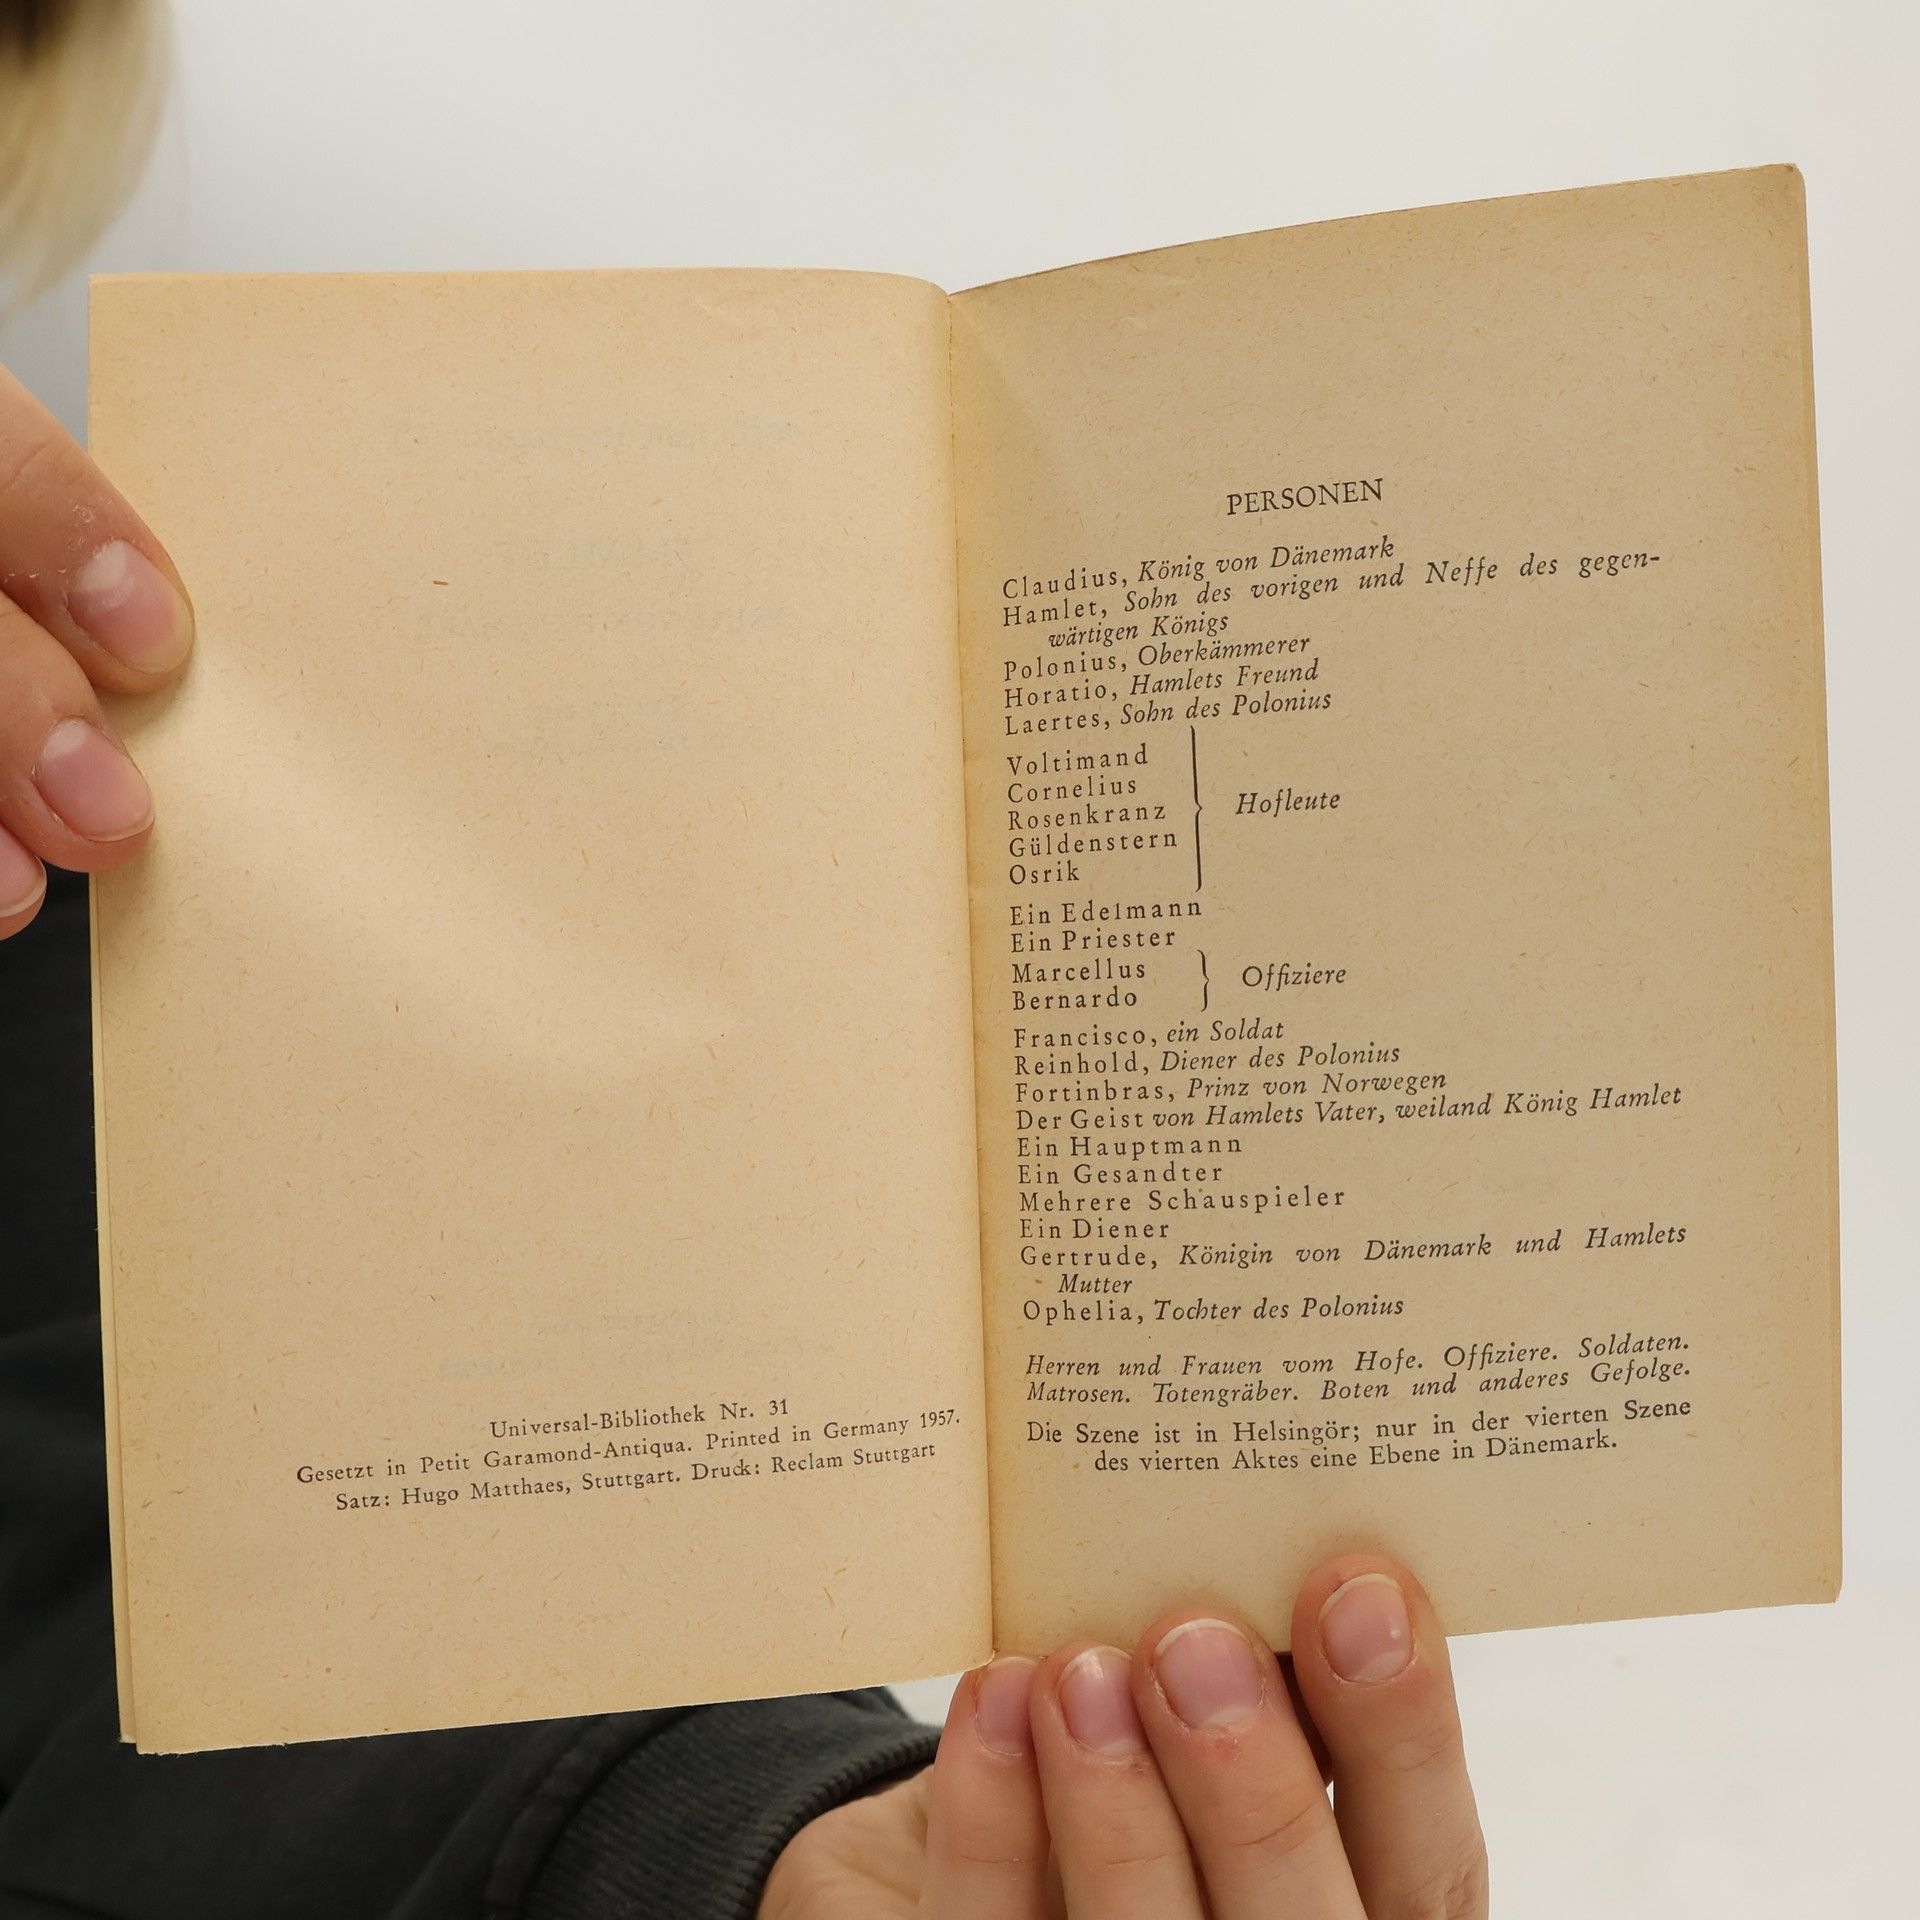 Universal-Bibliothek Nr. 31
Gesetzt in Petit Garamond-Antiqua. Printed in Germany 1957.
Satz: Hugo Matthaes, Stuttgart. Druck: Reclam Stuttgart
PERSONEN
Claudius, König von Dänemark
Hamlet, Sohn des vorigen und Neffe des gegen-
wärtigen Königs
Polonius, Oberkämmerer
Horatio, Hamlets Freund
Laertes, Sohn des Polonius
Voltimand
Cornelius
Rosenkranz
Güldenstern
Osrik
Hofleute
Ein Edelmann
Ein Priester
Marcellus
Bernardo
Offiziere
Francisco, ein Soldat
Reinhold, Diener des Polonius
Fortinbras, Prinz von Norwegen
Der Geist von Hamlets Vater, weiland König Hamlet
Ein Hauptmann
Ein Gesandter
Mehrere Schauspieler
Ein Diener
Gertrude, Königin von Dänemark und Hamlets
Mutter
Ophelia, Tochter des Polonius
Herren und Frauen vom Hofe. Offiziere. Soldaten.
Matrosen. Totengräber. Boten und anderes Gefolge.
Die Szene ist in Helsingör; nur in der vierten Szene
des vierten Aktes eine Ebene in Dänemark.